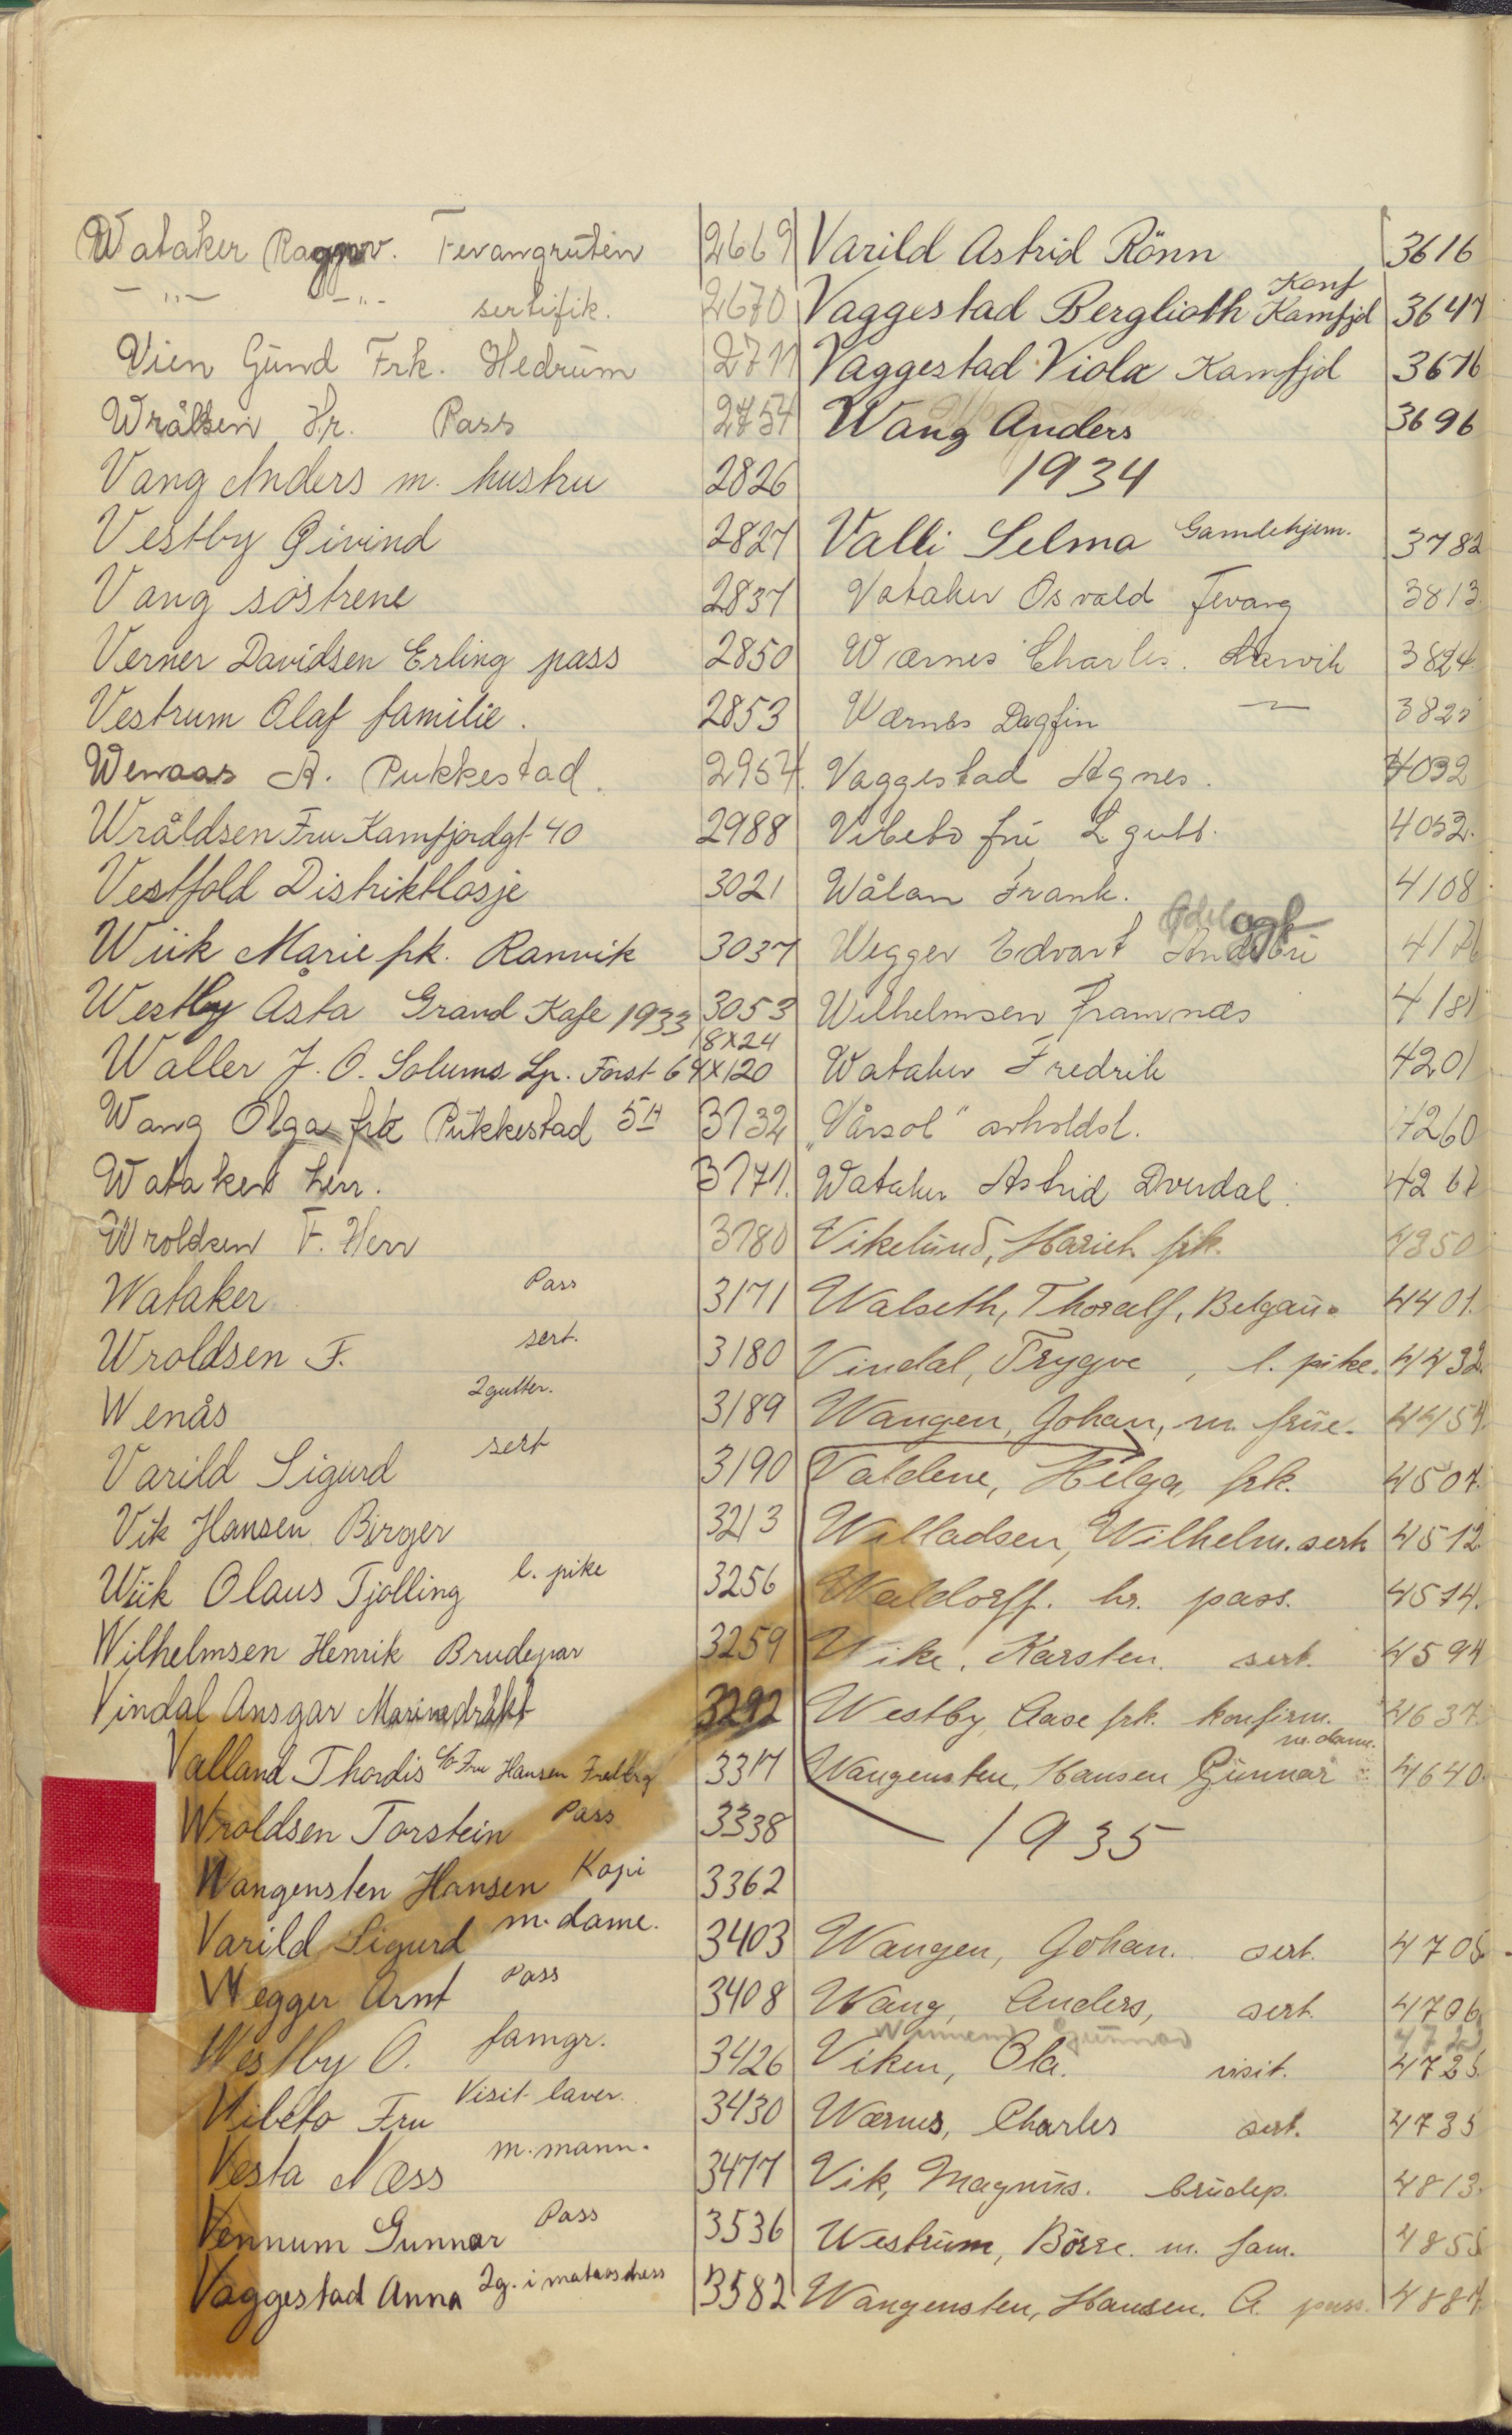 Wataker Ragnv. Fevangruten 2669
— " — — " — sertifik. 2670
Vien Gund Frk. Hedrum 2711
Wrålsen Hr. Pass 2754
Vang Anders m. hustru 2826
Vestby Øivind 2827
Vang søstrene 2837
Verner Davidsen Erling pass 2850
Vestrum Olaf familie. 2853
Wenaas A. Pukkestad. 2954.
Wråldsen Fru Kamfjordgt 40 2988
Vestfold Distriktlosje 3021
Wiik Marie frk. Ranvik 3037
Westby Åsta Grand Kafe 1933 3053
18x24
Waller J. O. Solums Lp. Forst 64x120
Wang Olga frk Pukkestad 5A 3132
Wataker herr. 3171.
Wroldsen F. Herr 3180
Wataker Pass 3171
Wroldsen F. sert. 3180
Wenås 2 gutter. 3189
Varild Sigurd sert 3190
Vik Hansen Birger 3213
Wiik Olaus Tjølling l. pike 3256
Wilhelmsen Henrik Brudepar 3259
Vindal Ansgar Marinedråkt 3292
Valland Thordis c/o Fru Hansen 3317
Wroldsen Torstein Pass 3338
Wangensten Hansen Kopi 3362
Varild Sigurd m. dame. 3403
Wegger Arnt Pass 3408
Westby O. famgr. 3426
Vibeto Fru Visit laver. 3430
Vesta Næss m. mann. 3477
Vennum Gunnar Pass 3536
Vaggestad Anna 2g. i matrosdress 3582
Varild Astrid Rönn 3616
Konf
Vaggestad Berglioth Kamfjd 3647
Vaggestad Viola Kamfjd 3676
Wang Anders 3696
1934
Valli Selma Gamlehjem. 3782
Vataker Osvald Fevang 3813
Wærnes Charles. Larvik 3824
Wærnes Dagfin — 3825
Vaggestad Agnes. 4032
Vibeto fru L gutt. 4052.
Wålan Frank. 4108
Wegger Edvart 4176
Wilhelmsen Framnæs 4181
Wataker Fredrik 4201
"Vårsol" avholdsl. 4260
Wataker Astrid Dverdal. 4267
Vikelund, Marich frk. 4350
Walseth, Thoralf, Belgau. 4401.
Vindal, Trygve, l. pike. 4432.
Wangen, Johan, m. frue. 4454.
Valdene, Helga, frk. 4507.
Willadsen, Wilhelm. sert 4512.
Waldorff. hr. pass. 4574.
Wike, Karsten. sert. 4594
Westby, Aase frk. konfirm. 4637.
m. dame.
Wangensten, Hansen Gunnar 4640.
1935
Wangen, Johan. sert. 4705.
Wang, Anders, sert. 4706.
Wennem Gunnar 4723
Viken, Ola. visit. 4725.
Wærnes, Charles sert. 4735
Vik, Magnus. brudep. 4813.
Westrum, Börre. m. fam. 4855
Wangensten, Hansen. A. pass. 4887.